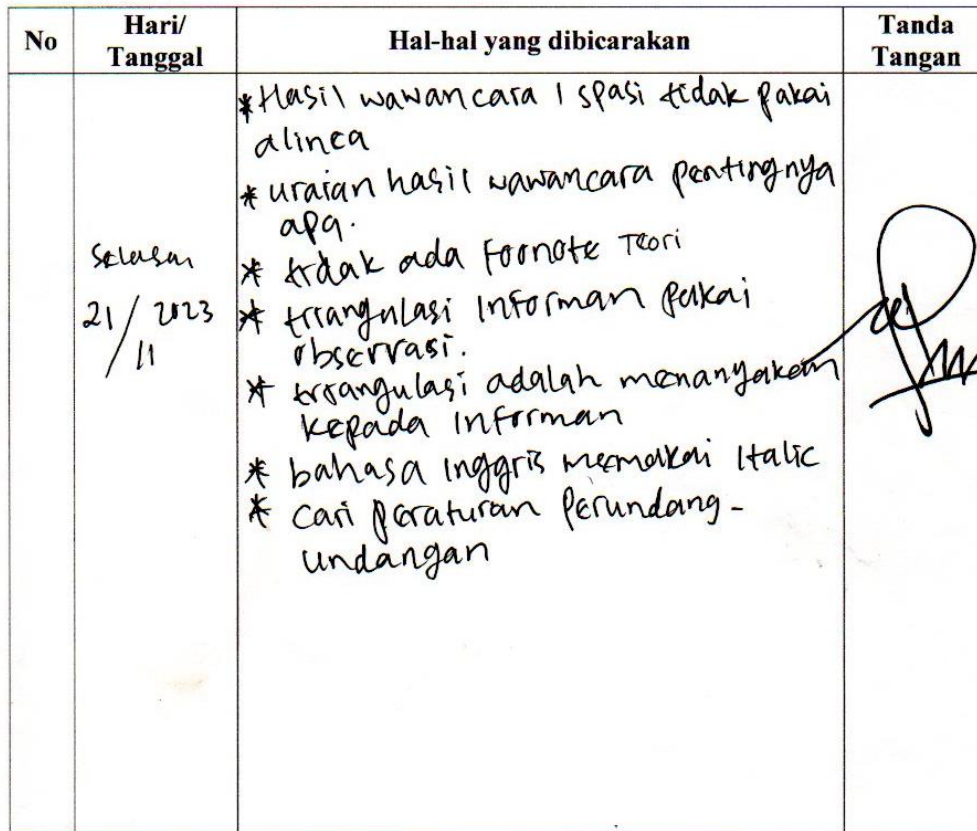 No
Hari/
Tanggal
Hal-hal yang dibicarakan
Tanda
Tangan
Selasa
21/11 2023
* Hasil wawancara 1 spasi tidak pakai
alinea
* uraian hasil wawancara pentingnya
apa.
* tidak ada Foonote Teori
* triangulasi Informan pakai
observasi.
* triangulasi adalah menanyakan
kepada Informan
* bahasa Inggris memakai Italic
* cari peraturan Perundang-
undangan